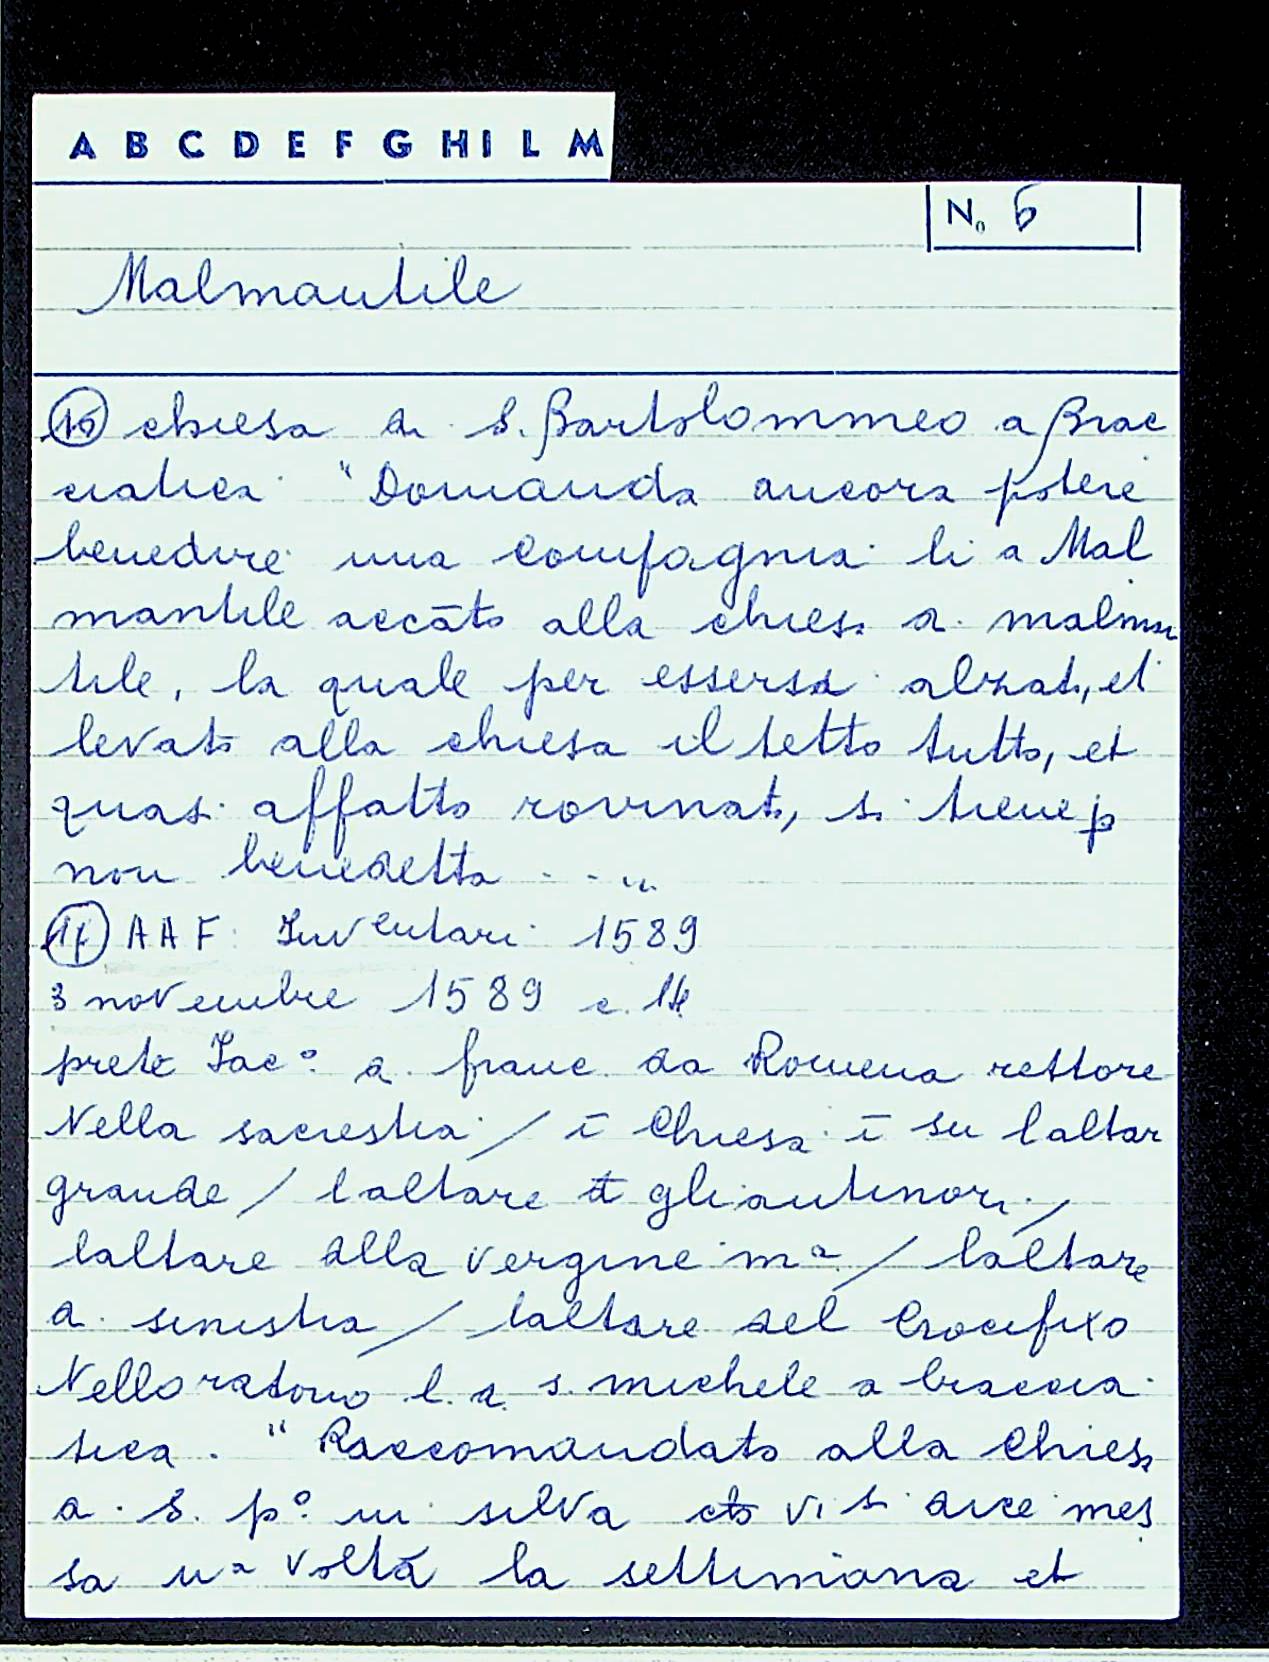 A B C D E F G H I L M
N. 6
Malmantile
16 chiesa di S. Bartolommeo a Brac
ciatica "Domanda ancora potere
benedire una compagnia li a Mal
mantile accāto alla chiesa di malmā
tile, la quale per essersi alzato, et
levato alla chiesa il tetto tutto, et
quasi affatto rovinato, si tiene p
non benedetta . . ."
17 AAF. Inventari 1589
3 novembre 1589 c. 14
prete Jac° di franc. da Romena rettore
Nella sacrestia / ī Chiesa ī su laltar
grande / laltare degli antinori /
laltare della vergine mª / laltare
a sinistra / laltare del Crocifixo
Nelloratorio di s. michele a braccia
tica. "Raccomandato alla Chiesa
di S. p° in selva vi si dice mes
sa uª volta la settimana et